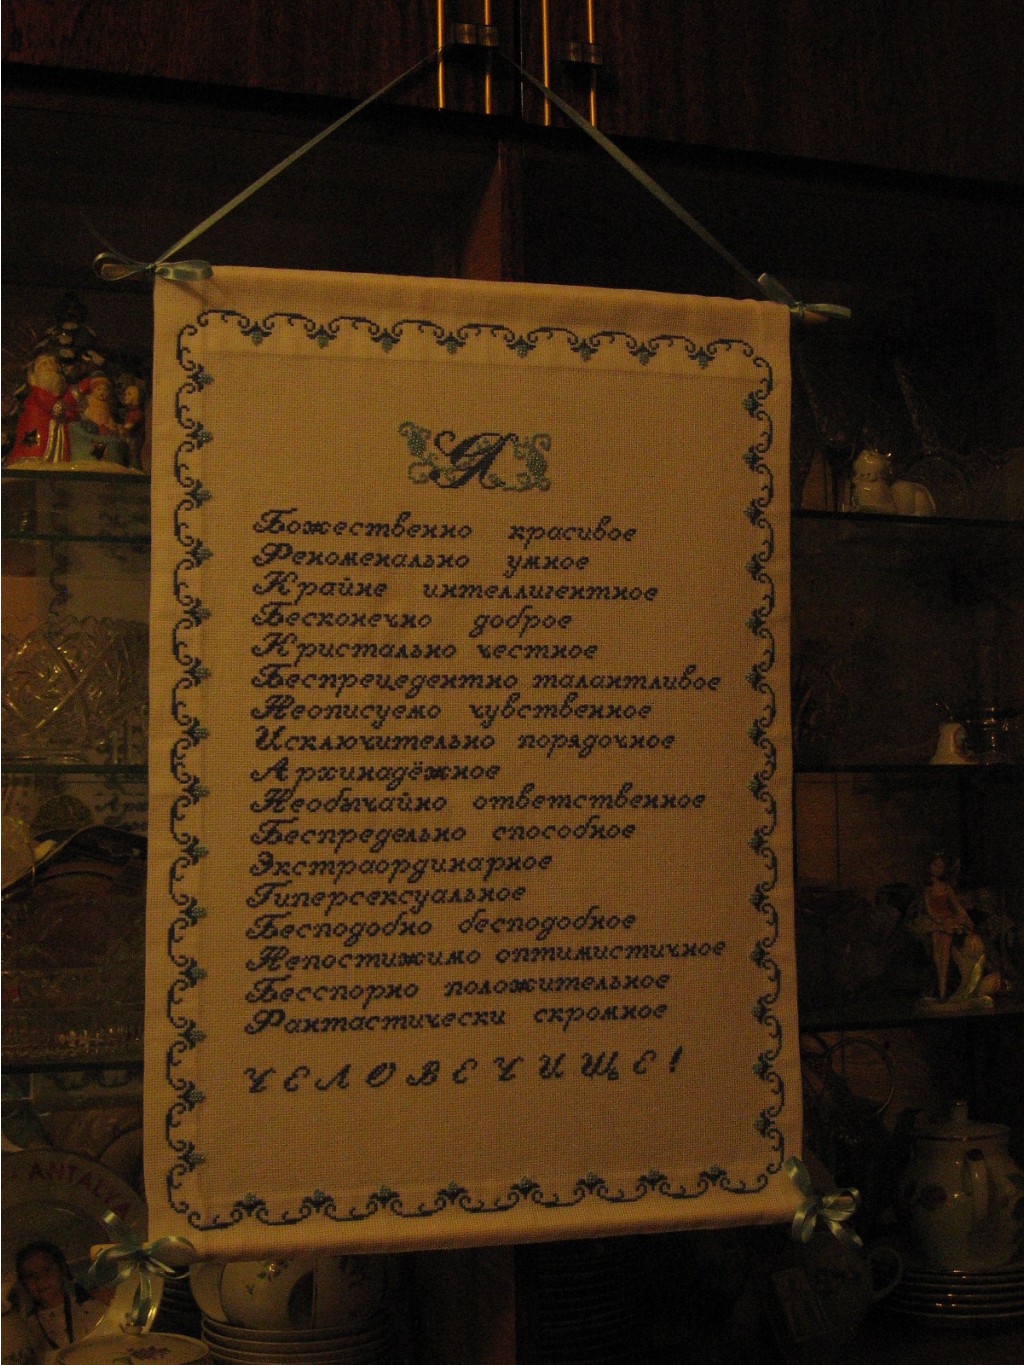 Я
Божественно красивое
Феноменально умное
Крайне интеллигентное
Бесконечно доброе
Кристально честное
Беспрецедентно талантливое
Неописуемо чувственное
Исключительно порядочное
Архинадёжное
Необычайно ответственное
Беспредельно способное
Экстраординарное
Гиперсексуальное
Бесподобно бесподобное
Непостижимо оптимистичное
Бесспорно положительное
Фантастически скромное
ЧЕЛОВЕЧИЩЕ!
ANTALYA